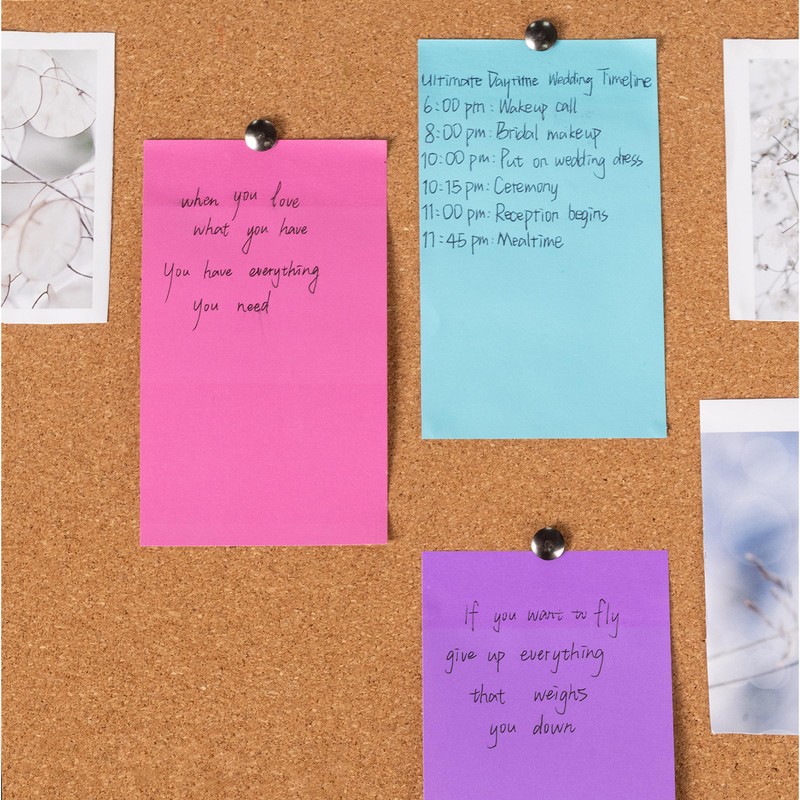 when you love
what you have
You have everything
you need
Ultimate Daytime Wedding Timeline
6:00 pm: Wakeup call
8:00 pm: Bridal makeup
10:00 pm: Put on wedding dress
10:15 pm: Ceremony
11:00 pm: Reception begins
11:45 pm: Mealtime
If you want to fly
give up everything
that weighs
you down